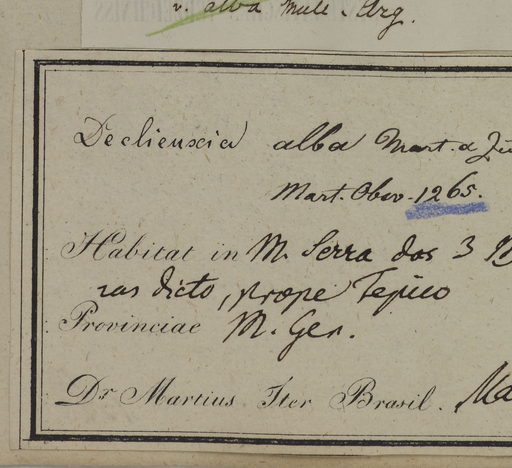 v. alba Mull. Arg.
Declieuxia alba Mart. a Zu
Mart. Obsv. 1265.
Habitat in M. Serra dos 3
ras dicto, prope Tejuco
Provinciae M. Ger.
Dr Martius Iter Brasil. Ma